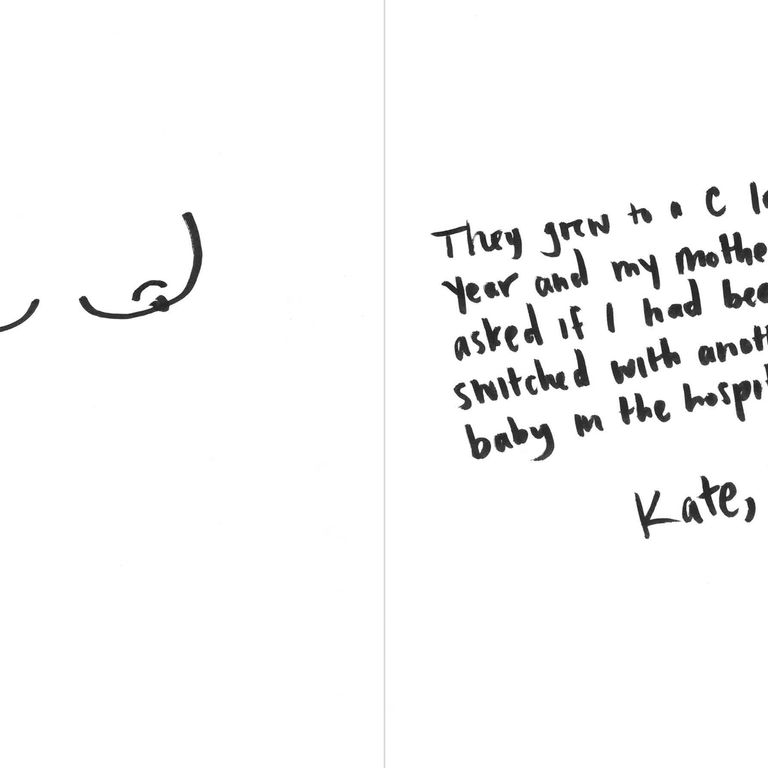 They grew to a C
year and my mothe
asked if I had bee
switched with anot
baby in the hospi
Kate,